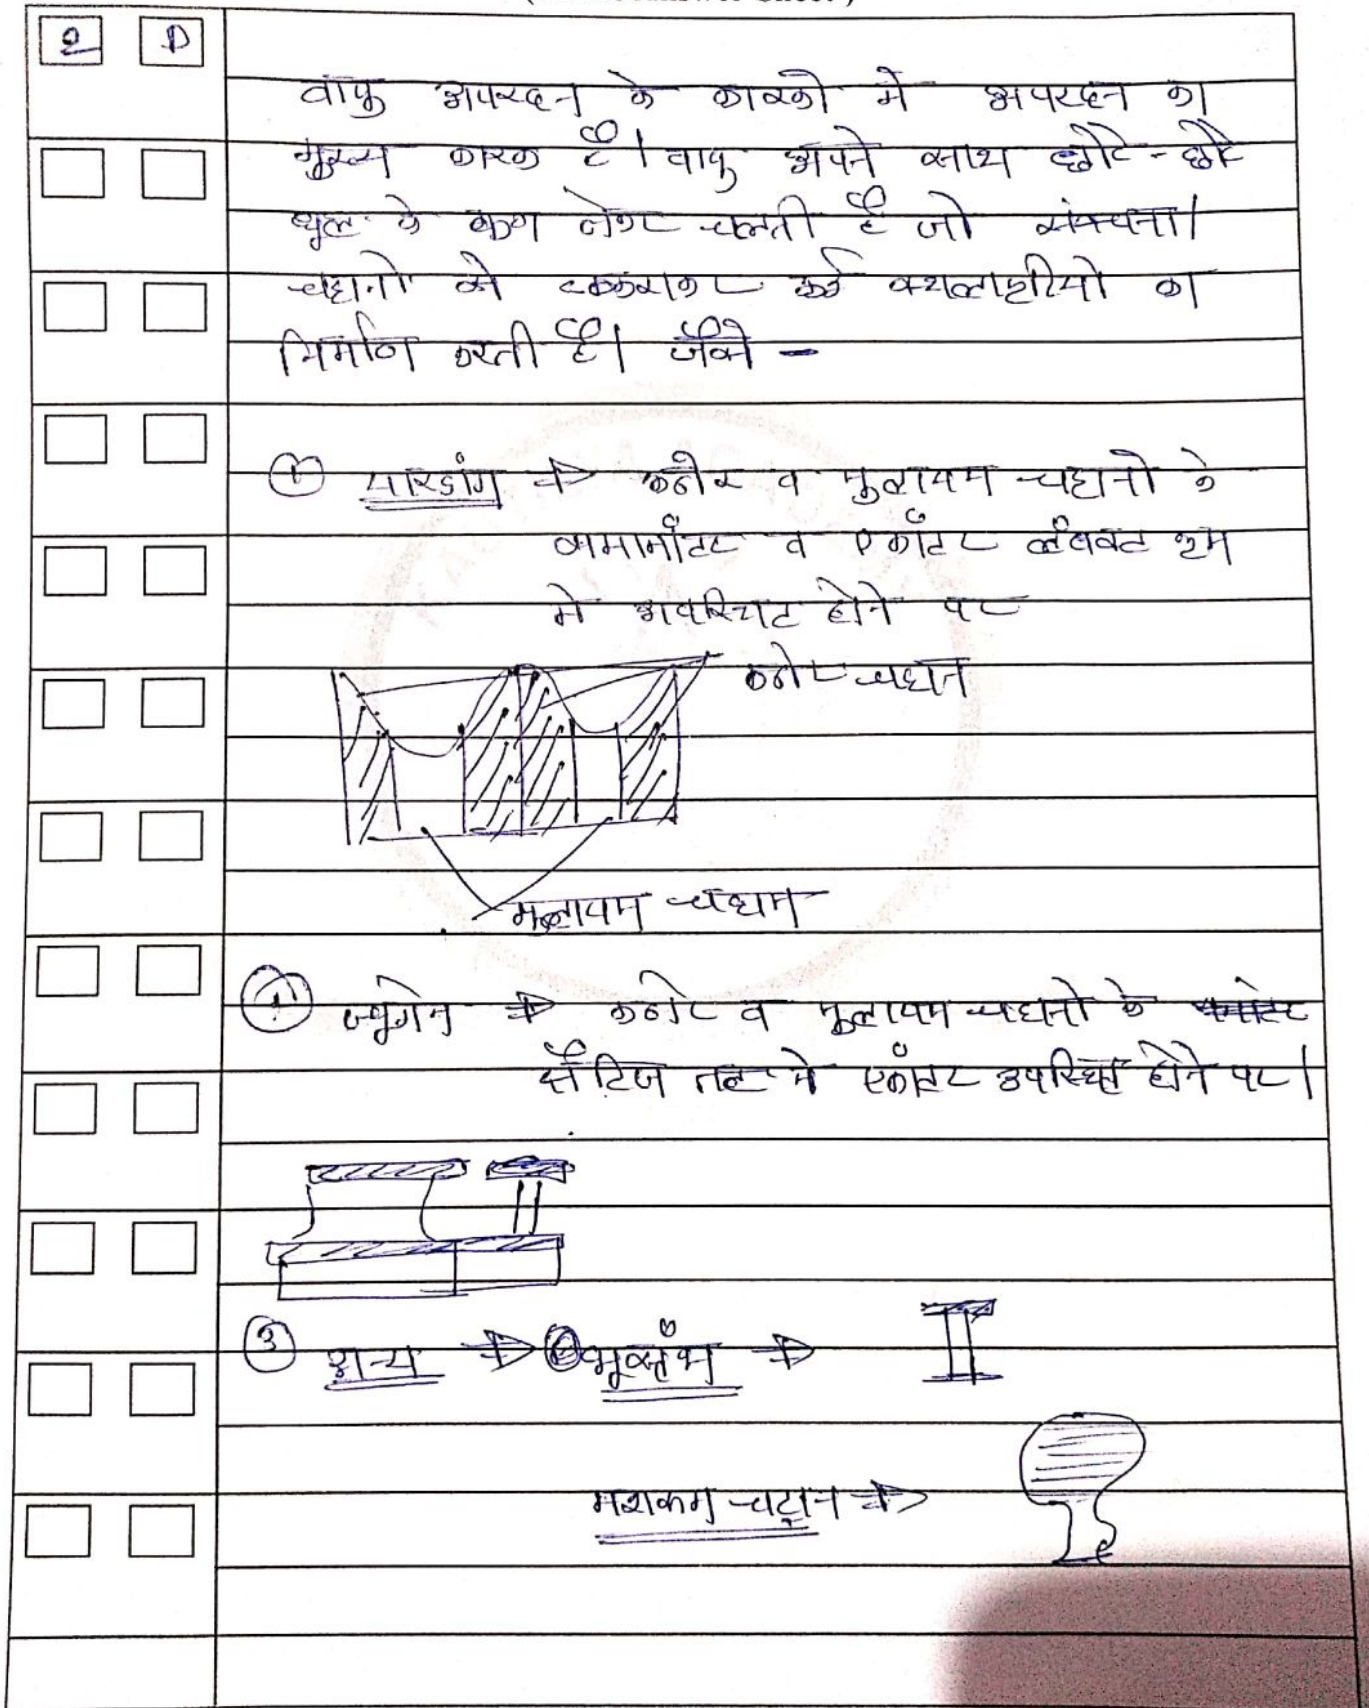 2 D
वायु अपरदन के कारको मे अपरदन का
मुख्य कारक है। वायु अपने साथ छोटे-छोटे
धूल के कण लेकर चलती है जो संरचना।
चट्टानो से टकराकर कई स्थलाकृतियो का
निर्माण करती है। जैसे -
① यारडांग ⇒ कठोर व मुलायम चट्टानो के
समानांतर व एकांतर लंबवत क्रम
मे अवस्थित होने पर
कठोर चट्टान
मुलायम चट्टान
ज्यूगेन ⇒ कठोर व मुलायम चट्टानो के
क्षैतिज तल मे एकांतर उपस्थित होने पर।
③ अन्य ⇒ भूस्तंभ ⇒
मशरूम चट्टान ⇒